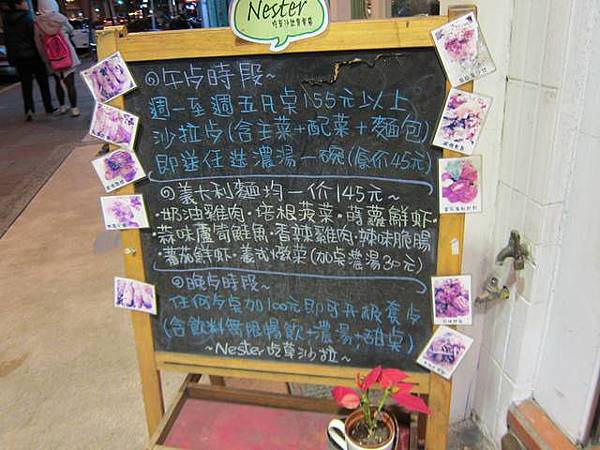 Nester
吃草沙拉
午点時段~
週一至週五凡点155元以上
沙拉皮(含主菜+配菜+麵包)
即送任选濃湯一碗(原价45元)
義大利麵均一价145元~
·奶油雞肉·培根菠菜·蒔蘿鮮虾
·蒜味蘆筍鮭魚·香辣雞肉·辣味脆腸
·蕃茄鲜虾·義式燉菜(加点濃湯30元)
晚点時段~
任何点加100元即可升級套点
(含飲料無限暢飲+濃湯+甜点)
~Nester吃草沙拉~